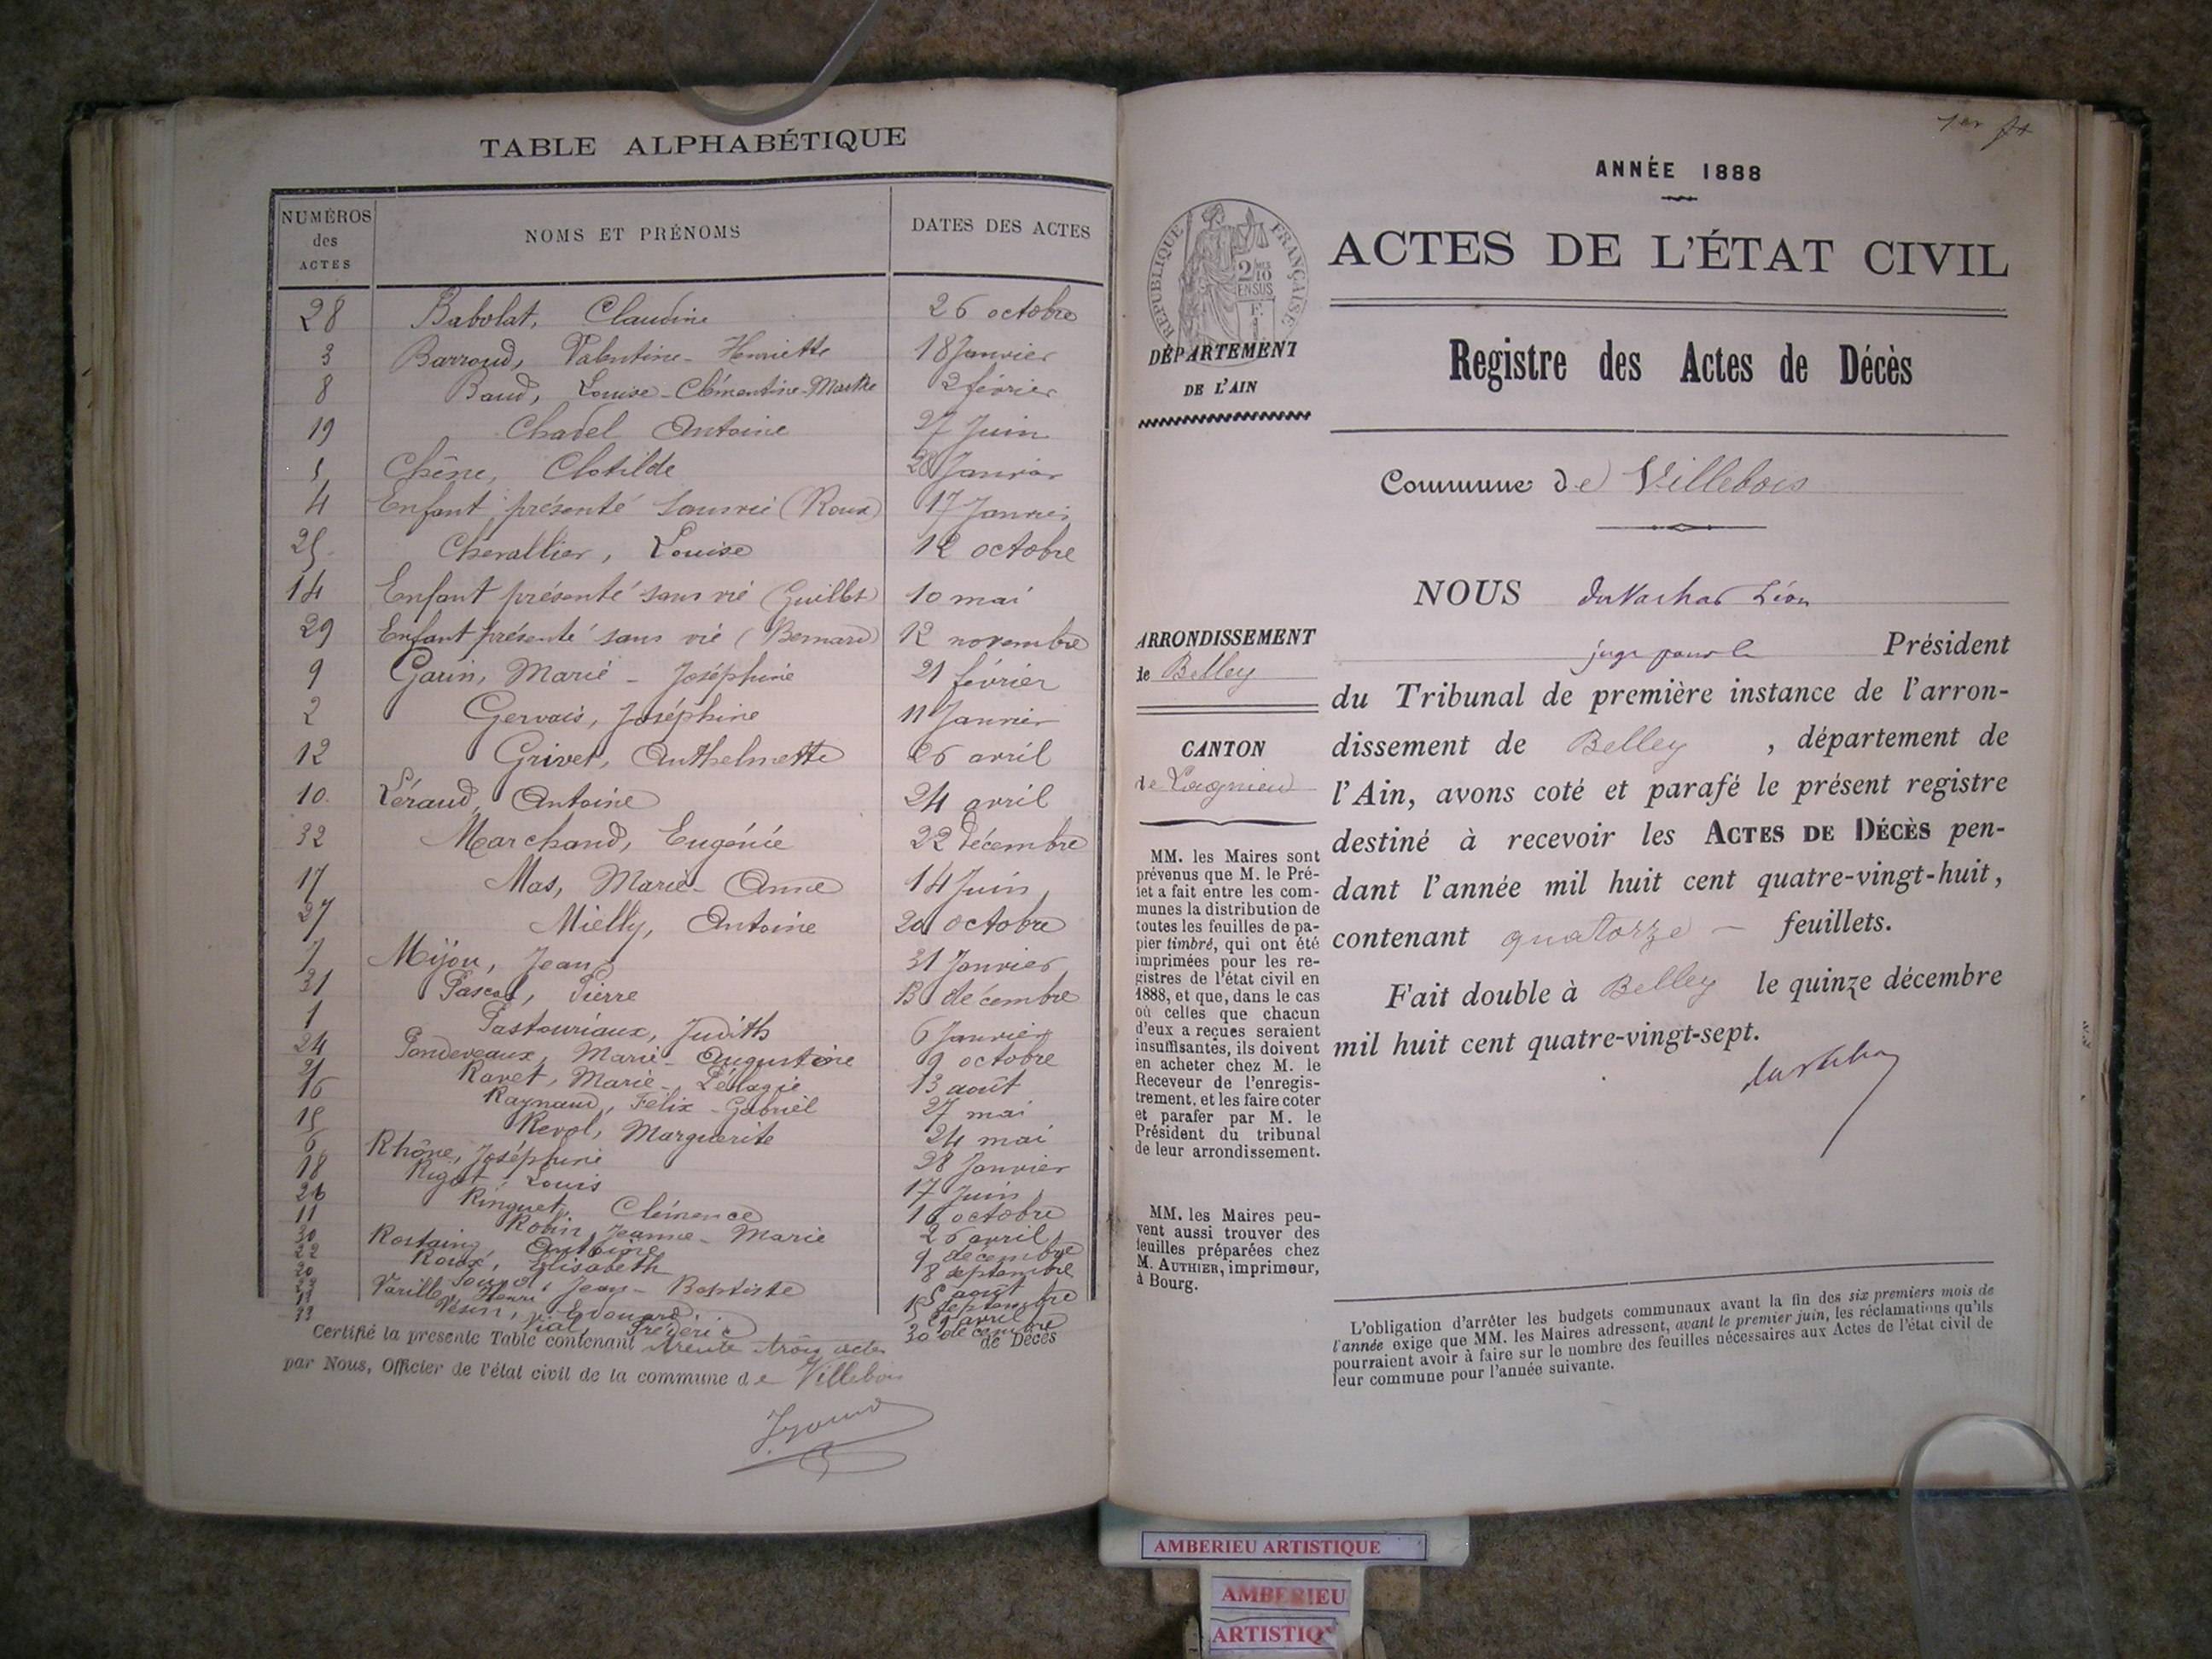 TABLE ALPHABÉTIQUE
NUMÉROS des ACTES
NOMS ET PRÉNOMS
DATES DES ACTES
28 Babolat, Claudine 26 octobre
3 Barroud, Valentine-Henriette 18 Janvier
8 Baud, Louise-Clémentine-Marthe 2 février
19 Chavel Antoine 27 Juin
5 Chêne, Clotilde 28 Janvier
4 Enfant présenté sans vie (Roux) 17 Janvier
25 Chevallier, Louise 12 octobre
14 Enfant présenté sans vie (Guillet) 10 mai
29 Enfant présenté sans vie (Bernard) 12 novembre
9 Garin, Marie-Joséphine 21 février
2 Gervais, Joséphine 11 Janvier
12 Grivet, Anthelmette 26 avril
10 Léraud, Antoine 24 avril
32 Marchand, Eugénie 22 décembre
17 Mas, Marie-Anne 14 Juin
27 Mielly, Antoine octobre
7 Mijou, Jean 31 Janvier
31 Pascal, Pierre 13 décembre
1 Pastouriaux, Judith 6 Janvier
24 Pondeveaux, Marie-Augustine 9 octobre
21 Ravet, Marie-Pélagie 13 août
16 Raynaud, Félix-Gabriel 27 mai
15 Revol, Marguerite 24 mai
6 Rhône, Joséphine 28 Janvier
18 Rigot, Louis 17 Juin
26 Ringuet, Clémence 16 octobre
11 Robin, Jeanne-Marie 26 avril
30 Rostaing, Antoine 9 décembre
22 Roux, Elisabeth 8 septembre
20 Jean-Baptiste 5 août
Varille, Henri 15 septembre
13 Vésin, Edouard avril
33 Vial, Frédéric 30 décembre
Certifié la présente Table contenant trente trois actes de Décès
par Nous, Officier de l'état civil de la commune de Villebois
1er
ANNÉE 1888
ACTES DE L'ÉTAT CIVIL
RÉPUBLIQUE FRANÇAISE
2 10 EN SUS
F. 1
DÉPARTEMENT
DE L'AIN
Registre des Actes de Décès
Commune de Villebois
ARRONDISSEMENT
de Belley
CANTON
de Lagnieu
MM. les Maires sont
prévenus que M. le Pré-
fet a fait entre les com-
munes la distribution de
toutes les feuilles de pa-
pier timbré, qui ont été
imprimées pour les re-
gistres de l'état civil en
1888, et que, dans le cas
où celles que chacun
d'eux a reçues seraient
insuffisantes, ils doivent
en acheter chez M. le
Receveur de l'enregis-
trement, et les faire coter
et parafer par M. le
Président du tribunal
de leur arrondissement.
MM. les Maires peu-
vent aussi trouver des
feuilles préparées chez
M. AUTHIER, imprimeur,
à Bourg.
NOUS Léon
juge pour le Président
du Tribunal de première instance de l'arron-
dissement de Belley, département de
l'Ain, avons coté et parafé le présent registre
destiné à recevoir les ACTES DE DÉCÈS pen-
dant l'année mil huit cent quatre-vingt-huit,
contenant quatorze feuillets.
Fait double à Belley le quinze décembre
mil huit cent quatre-vingt-sept.
L'obligation d'arrêter les budgets communaux avant la fin des six premiers mois de
l'année exige que MM. les Maires adressent, avant le premier juin, les réclamations qu'ils
pourraient avoir à faire sur le nombre des feuilles nécessaires aux Actes de l'état civil de
leur commune pour l'année suivante.
AMBERIEU ARTISTIQUE
AMBERIEU
ARTISTIQ